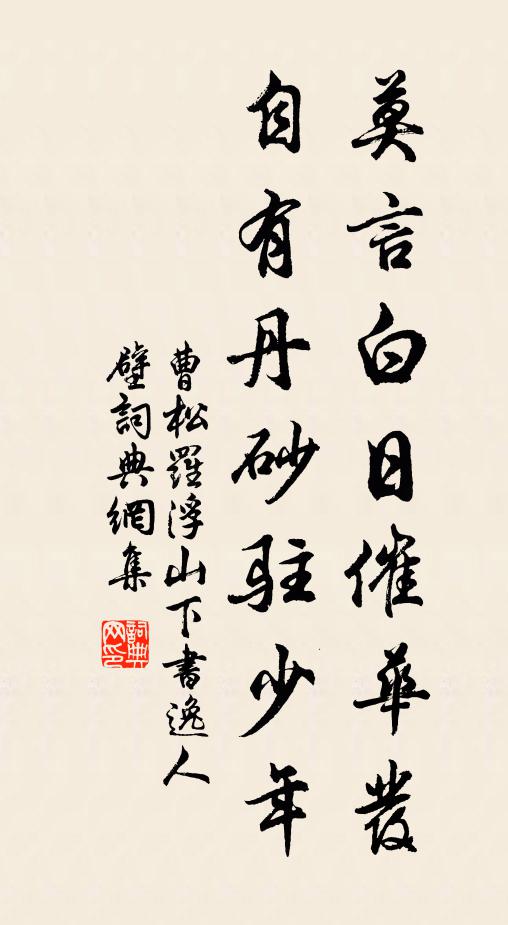 莫言白日催華發
自有丹砂駐少年
曹松羅浮山下書逸人
壁詞典網集
詞典网印